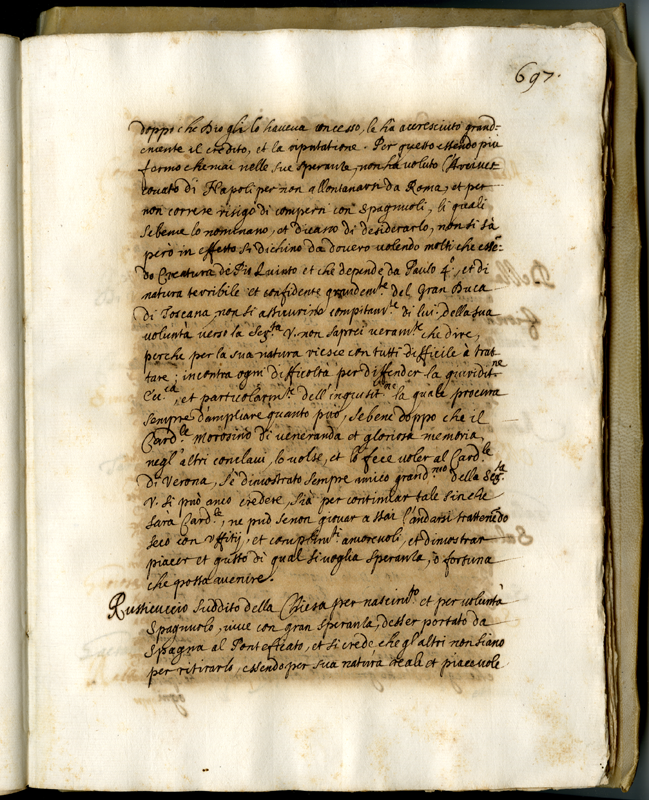 697.
doppo che Dio gli lo haveva concesso, le hà accresciuto grand=
emente il credito, et la riputatione. Per questo essendo più
fermo che mai nelle sue speranze, non hà voluto l'Arcives
covato di Napoli per non allontanarsi da Roma, et per
non correre risigo di compern con Spagnuoli, li quali
sebene lo nominano, et dicano di desiderarlo, non si sà
però in effetto si dichino da dovero volendo molti che esse=
do Creatura di Pio Quinto et che depende da Paulo 4.º, et di
natura terribile et confidente grandem.te del Gran Duca
di Toscana non si assicurino compitam.te di lui. della sua
voluntà verso la Ser.tà V. non saprei veram.te che dire,
perche per la sua natura riesce con tutti difficile à trat
tare; incontra ogni difficoltà per diffender la giuridit.ne
Ecc.ca, et particolarm.te dell'inquisit.ne la quale procura
sempre d'ampliare quanto può, sebene doppo che il
Card.le Morosino di veneranda et gloriosa memoria,
negl'altri conclavi lo volse, et lo fece voler al Card.le
di Verona, s'è dimostrato sempre amico grand.mo della Ser.tà
V. si può anco credere, sia per continuar tale sinche
sarà Card.le, ne può senon giovar assai l'andarsi trattenēdo
seco con Uffitij, et complim.ti amorevoli, et dimostrar
piacer et gusto di qual si voglia speranza, ò fortuna
che possa avenire.
Rusticuccio suddito della Chiesa per nascim.to et per voluntà
Spagnuolo, vive con gran speranza d'esser portato da
Spagna al Pontificato, et si crede che gl'altri non siano
per ritirarlo, essendo per sua natura reale et piacevole